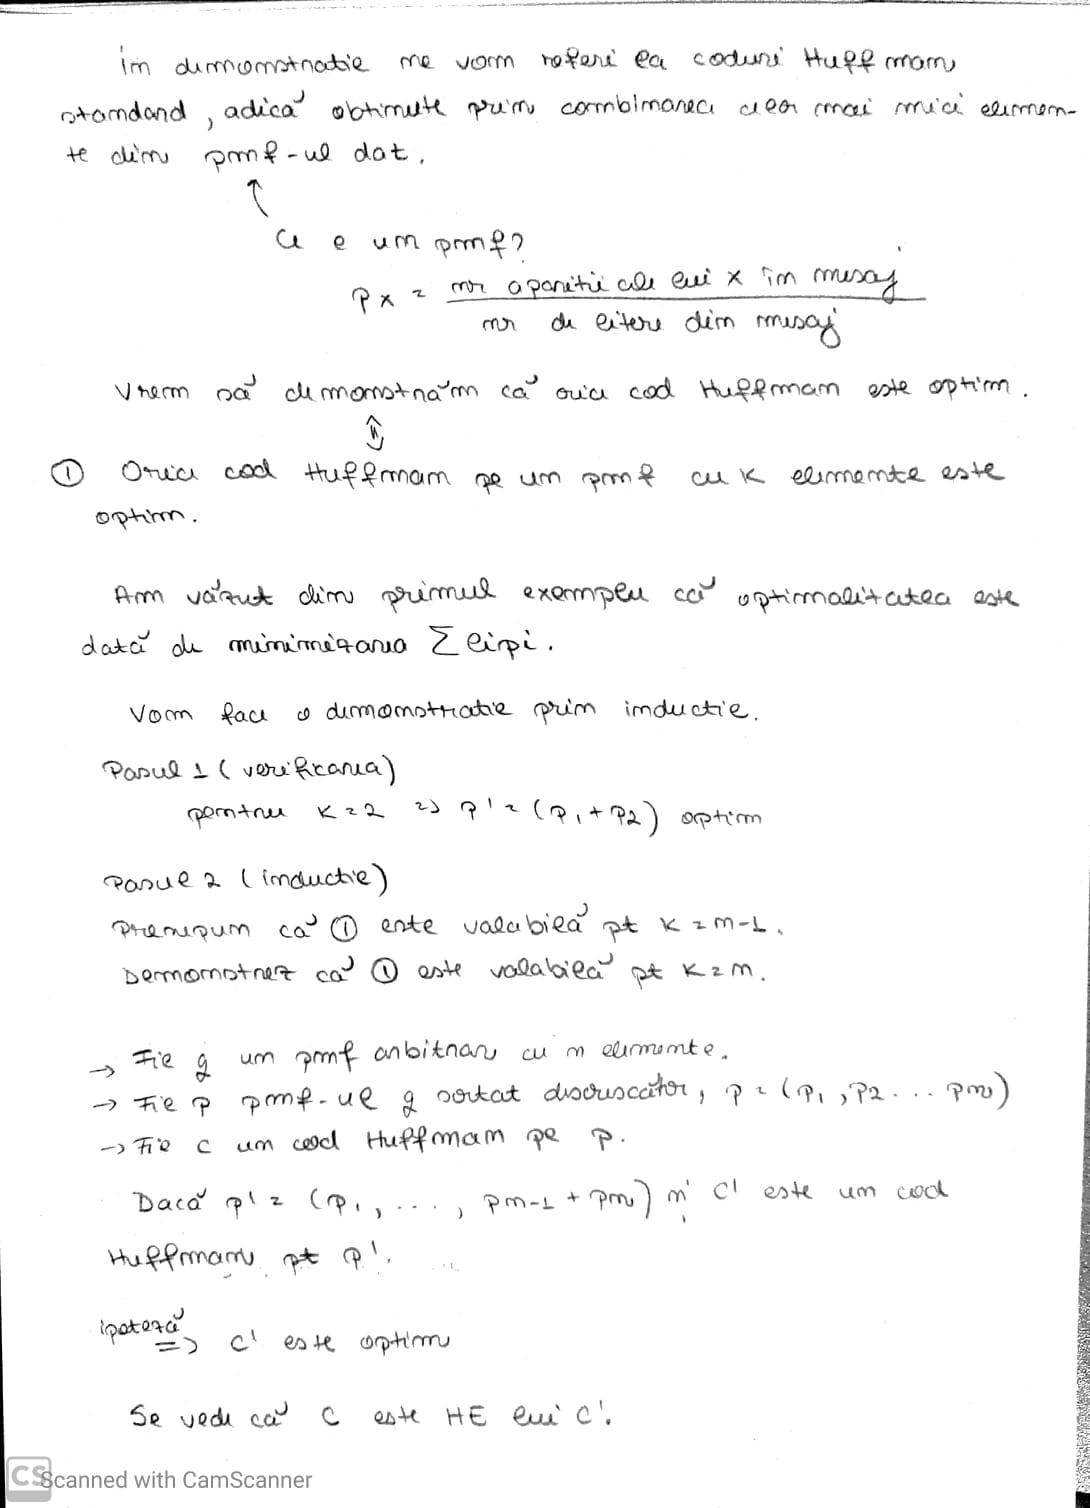 în demonstratie ne vom referi la coduri Huffman
standard, adică obtinute prin combinarea celor mai mici elemen-
te din pmf-ul dat.
↑
Ce e un pmf?
Px = nr aparitii ale lui x în mesaj
nr de litere din mesaj
Vrem să demonstrăm că orice cod Huffman este optim.
⇕
① Orice cod Huffman pe un pmf cu K elemente este
optim.
Am văzut din primul exemplu că optimalitatea este
dată de minimizarea Σ lipi.
Vom face o demonstratie prin inductie.
Pasul 1 (verificarea)
pentru K=2 => P' = (P1+P2) optim
Pasul 2 (inductie)
Presupun că ① este valabilă pt K = n-1.
Demonstrez că ① este valabilă pt K = n.
→ Fie g un pmf arbitrar cu n elemente.
→ Fie p pmf-ul g sortat descrescător, p = (P1, P2 ... Pn)
→ Fie C un cod Huffman pe p.
Dacă p' = (P1, ..., Pn-1 + Pn) si C' este un cod
Huffman pt p'.
ipoteză
=> C' este optim
Se vede că C este HE lui C'.
CS Scanned with CamScanner